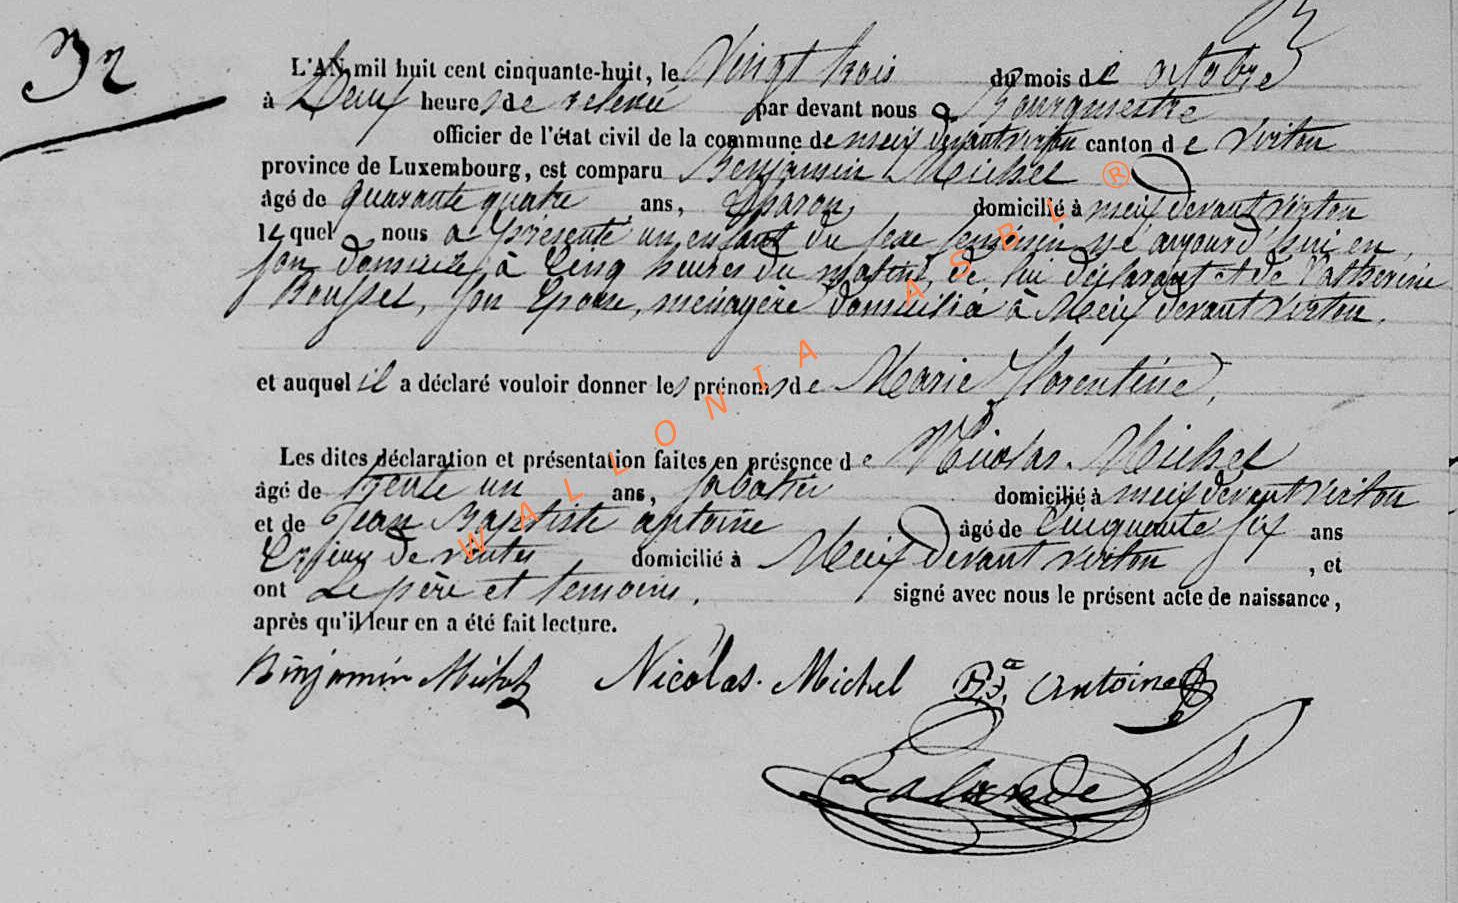 32
L'AN mil huit cent cinquante-huit, le Vingt trois du mois de octobre
à Deux heures de relevée par devant nous Bourgmestre
officier de l'état civil de la commune de meix devant virton canton de Virton
province de Luxembourg, est comparu Benjamin Michel
âgé de quarante quatre ans, domicilié à meix devant virton
lequel nous a présenté un enfant du sexe feminin né aujourd'hui en
son domicile à Cinq heures du matin, de lui déclarant et de Catherine
son Epouse, ménagère domiciliée à Meix devant Virton.
et auquel il a déclaré vouloir donner les prénoms de Marie Florentine,
Les dites déclaration et présentation faites en présence de Nicolas Michel
âgé de trente un ans, sabotier domicilié à meix devant virton
et de Jean Baptiste antoine âgé de Cinquante six ans
domicilié à Meix devant virton, et
ont Le père et temoins. signé avec nous le présent acte de naissance,
après qu'il leur en a été fait lecture.
Binjamin Michel Nicolas. Michel Bte antoine
Lalande
WALLONIA ASBL ®